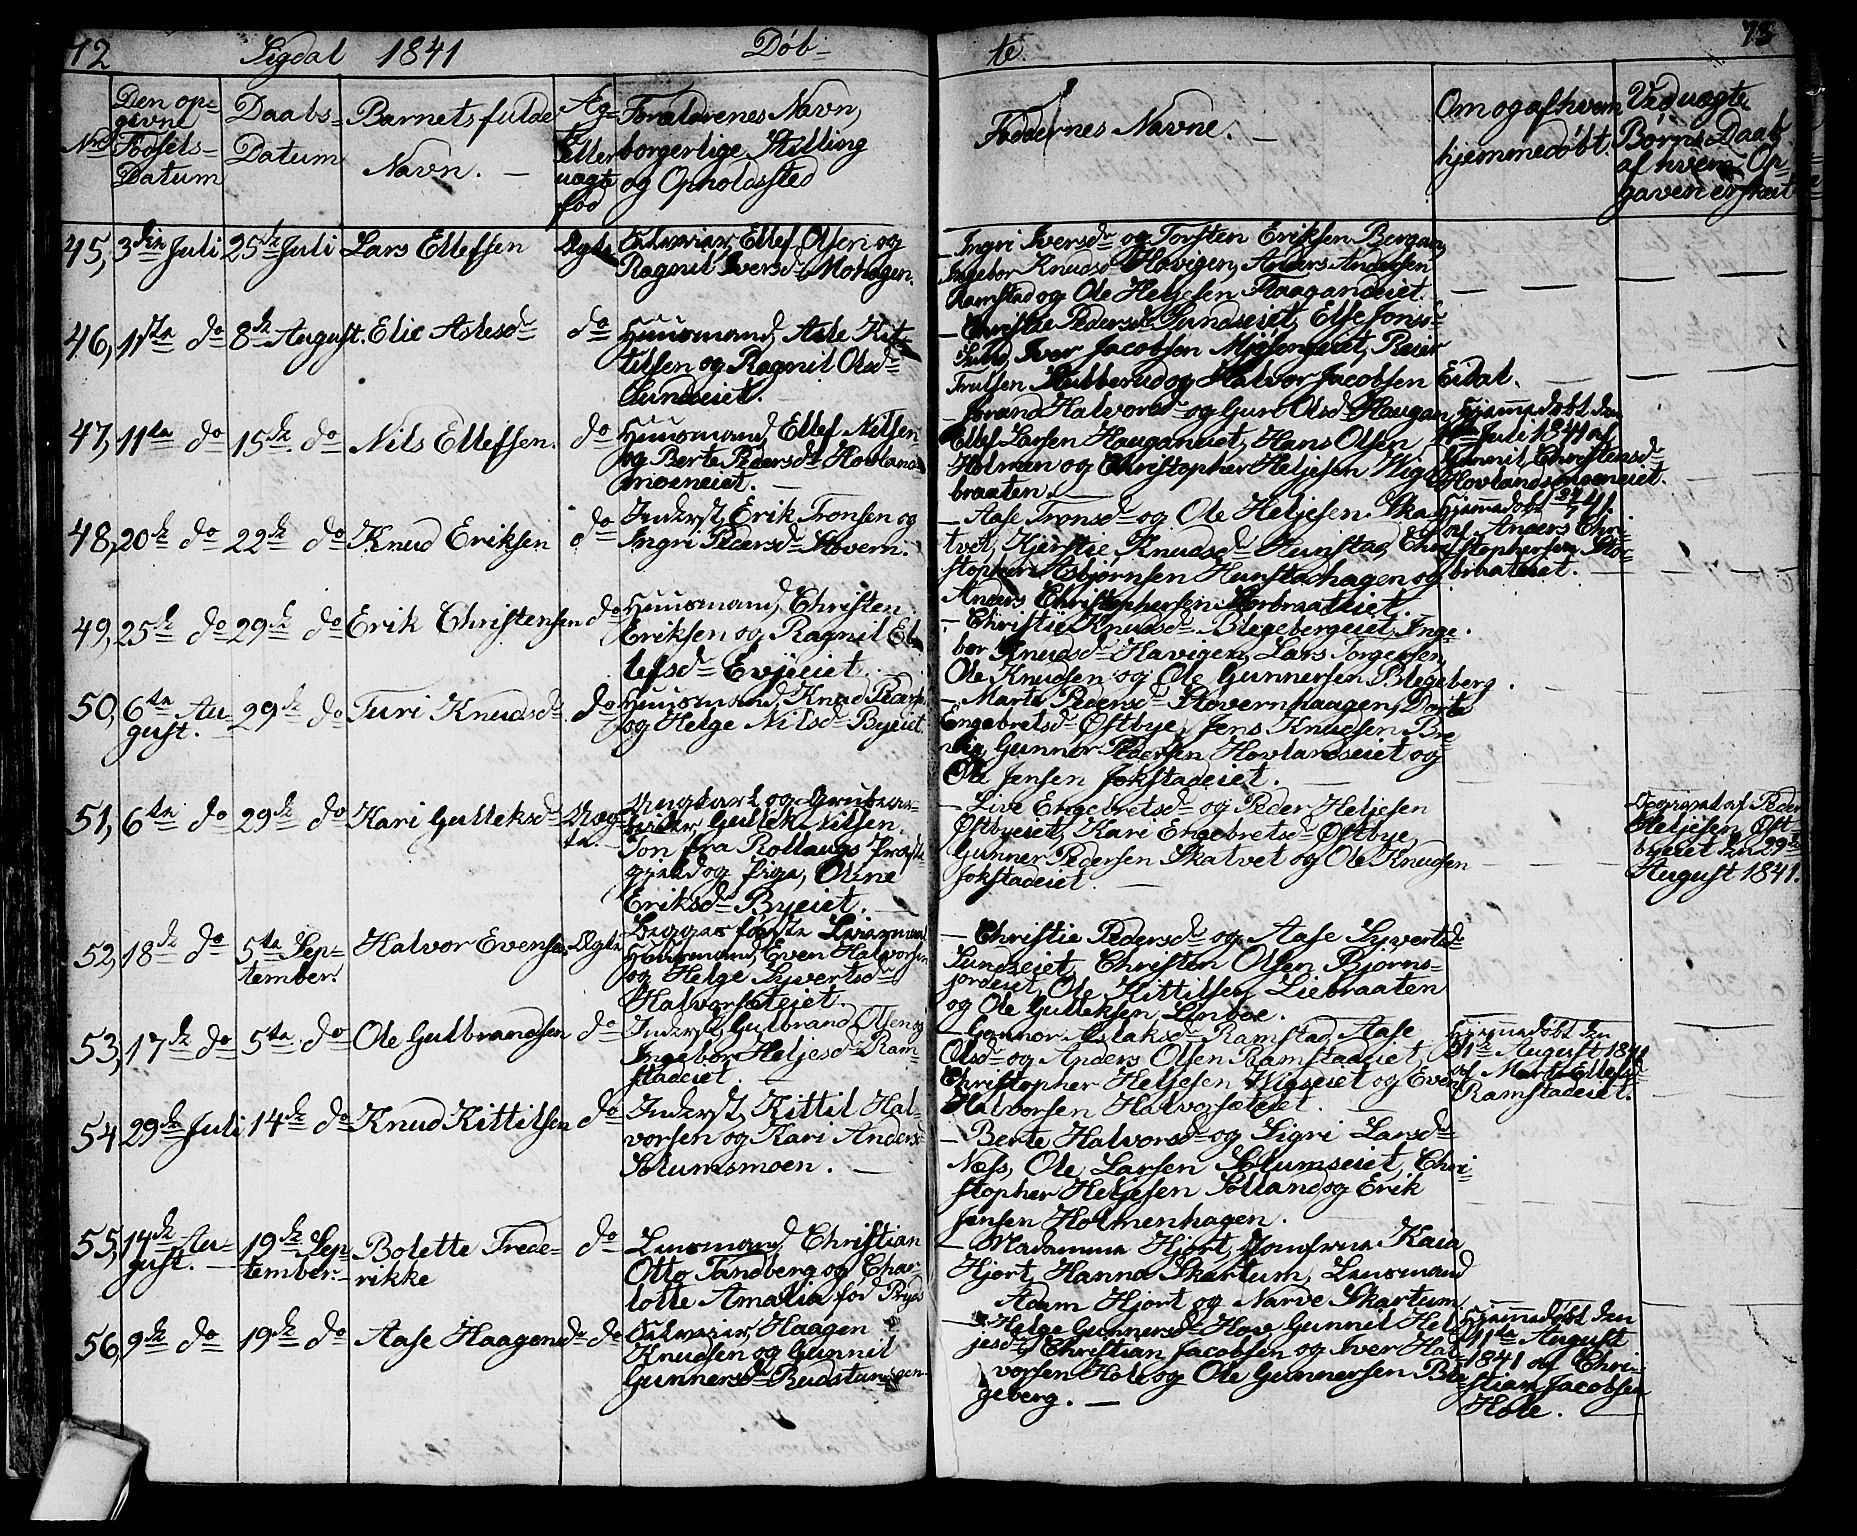 72 Sigdal 1841 Døb-
te. 73
Nro
Den op-
givne
Fødsels-
Datum
Daabs-
Datum
Barnets fulde
Navn. —
Æg-
te eller
uægte
fød
Forældrenes Navn,
borgerlige Stilling
og Opholdssted
Faddernes Navne. —
Om og af hvem
hjemmedøbt.
Ved uægte
Børns Daab
af hvem Op-
gaven er skeet
45, 3die Juli 25de Juli Lars Ellefsen Ægte
Ellef Olsen og
Ragnil Iversdr Mohagen.
— Ingri Iversdr og Torsten Eriksen Bergan,
Ingebor Knudsdr Havigen, Anders Andersen
Ramstad og Ole Heljesen Raaganseiet.
46, 11te do 8de August. Elie Aslesdr do
Huusmand, Asle Kit-
tilsen og Ragnil Olsdr
Sundseiet.
— Christie Pedersdr Sundseiet, Else Jonsdr
Lund, Iver Jacobsen Mjøsenseiet, Reier
Trulsen Stubberud og Halvor Jacobsen Eidal.
47, 11te do 15de do Nils Ellefsen. do
Huusmand, Ellef Nilsen
og Berte Pedersdr Hovlands-
moeneiet. —
— Jørand Halvorsdr og Guri Olsdr Haugan,
Ellef Larsen Hauganeiet, Hans Olsen
Holmen og Christopher Heljesen Wig-
braaten. —
Hjemmedøbt den
Juli 1841 af
Gunnil Christensdr
Hovlandsmoeneiet.
48, 20de do 22de do Knud Eriksen do
Inderst, Erik Tronsen og
Ingri Pedersdr Stovern.
— Aase Tronsdr og Ole Heljesen Ska-
tvet, Kjerstie Knudsdr Hunstad, Chri-
stopher Asbjørnsen Hunstadhagen og
Anders Christophersen Storbraateiet.
Hjemmedøbt 24/7 41
af Anders Chri-
stophersen Stor-
braateiet.
49, 25de do 29de do Erik Christensen do
Huusmand, Christen
Eriksen og Ragnil El-
lefsdr Evjeeiet.
— Christie Knudsdr Blegebergeiet, Inge-
bor Knudsdr Havigen, Lars Torgersen,
Ole Knudsen og Ole Gunnersen Blegeberg.
50, 6te Au-
gust. — 29de do Turi Knudsdr do
Huusmand, Knud Pedersen
og Helge Nilsdr Byeiet.
— Marte Pedersdr Stovernhaugen, Dorte
Engebretsdr Østbye, Jens Knudsen Bre-
Gunner Pedersen Hovlandseiet og
Ole Jensen Jokstadeiet.
51, 6te do 29de do Kari Gulleksdr Uæg-
te.
Ungkarl og Grubear-
beider Gullek Nilsen
fra Rollaugs Præste-
gjeld og Pige, Oline
Eriksdr Byeiet. —
Begges første Leiermaal.
— Live Engebretsdr og Peder Heljesen
Østbyeeiet, Kari Engebretsdr Østbye,
Gunner Pedersen Skatvet og Ole Knudsen
Jokstadeiet. —
Opgivet af Peder
Heljesen Øst-
byeeiet den 29de
August 1841.
52, 18de do 5te Sep-
tember. Halvor Evensen Ægte
Huusmand, Even Halvorsen
og Helge Syvertsdr
Halvorsæteiet.
— Christie Pedersdr og Aase Syvertsdr
Sundseiet, Christen Olsen Bjørns-
jordeiet, Ole Kittilsen Liebraaten
og Ole Gulleksen Lindboe.
53, 17de do 5te do Ole Gulbrandsen do
Inderst, Gulbrand Olsen og
Ingebor Heljesdr Ram-
stadeiet.
— Gonnor Aslaksdr Ramstad, Aase
Olsdr og Anders Olsen Ramstadeiet,
Christopher Heljesen Wigseiet og Even
Halvorsen Halvorsæteiet.
Hjemmedøbt den
21de August 1841
af Marte Ellefsdr
Ramstadeiet.
54 29de Juli 14de do Knud Kittilsen do
Inderst, Kittil Hal-
vorsen og Kari Andersdr
Solumsmoen. —
— Berte Halvorsdr og Sigri Larsdr
Næss, Ole Larsen Solumseiet, Chri-
stopher Heljesen Solland og Erik
Jensen Holmenhagen.
55, 14de Au-
gust. — 19de Sep-
tember. Bolette Frede-
rikke do
Lensmand, Christian
Otto Tandberg og Char-
lotte Amalia fød Pryds
— Madamme Hjort, Jomfrue Kaia
Hjort, Hanna Skartum, Lensmand
Adam Hjort og Narve Skartum
56, 9de do 19de do Aase Haagensdr do
Haagen
Knudsen og Gunnil
Gunnersdr Rudstuen
— Helge Gunnersdr Hole, Gunnil Hel-
jesdr, Christian Jacobsen og Iver Hal-
vorsen Hole og Ole Gunnersen Ble-
geberg. —
Hjemmedøbt den
11te August
1841 af Chri-
stian Jacobsen
Hole. —